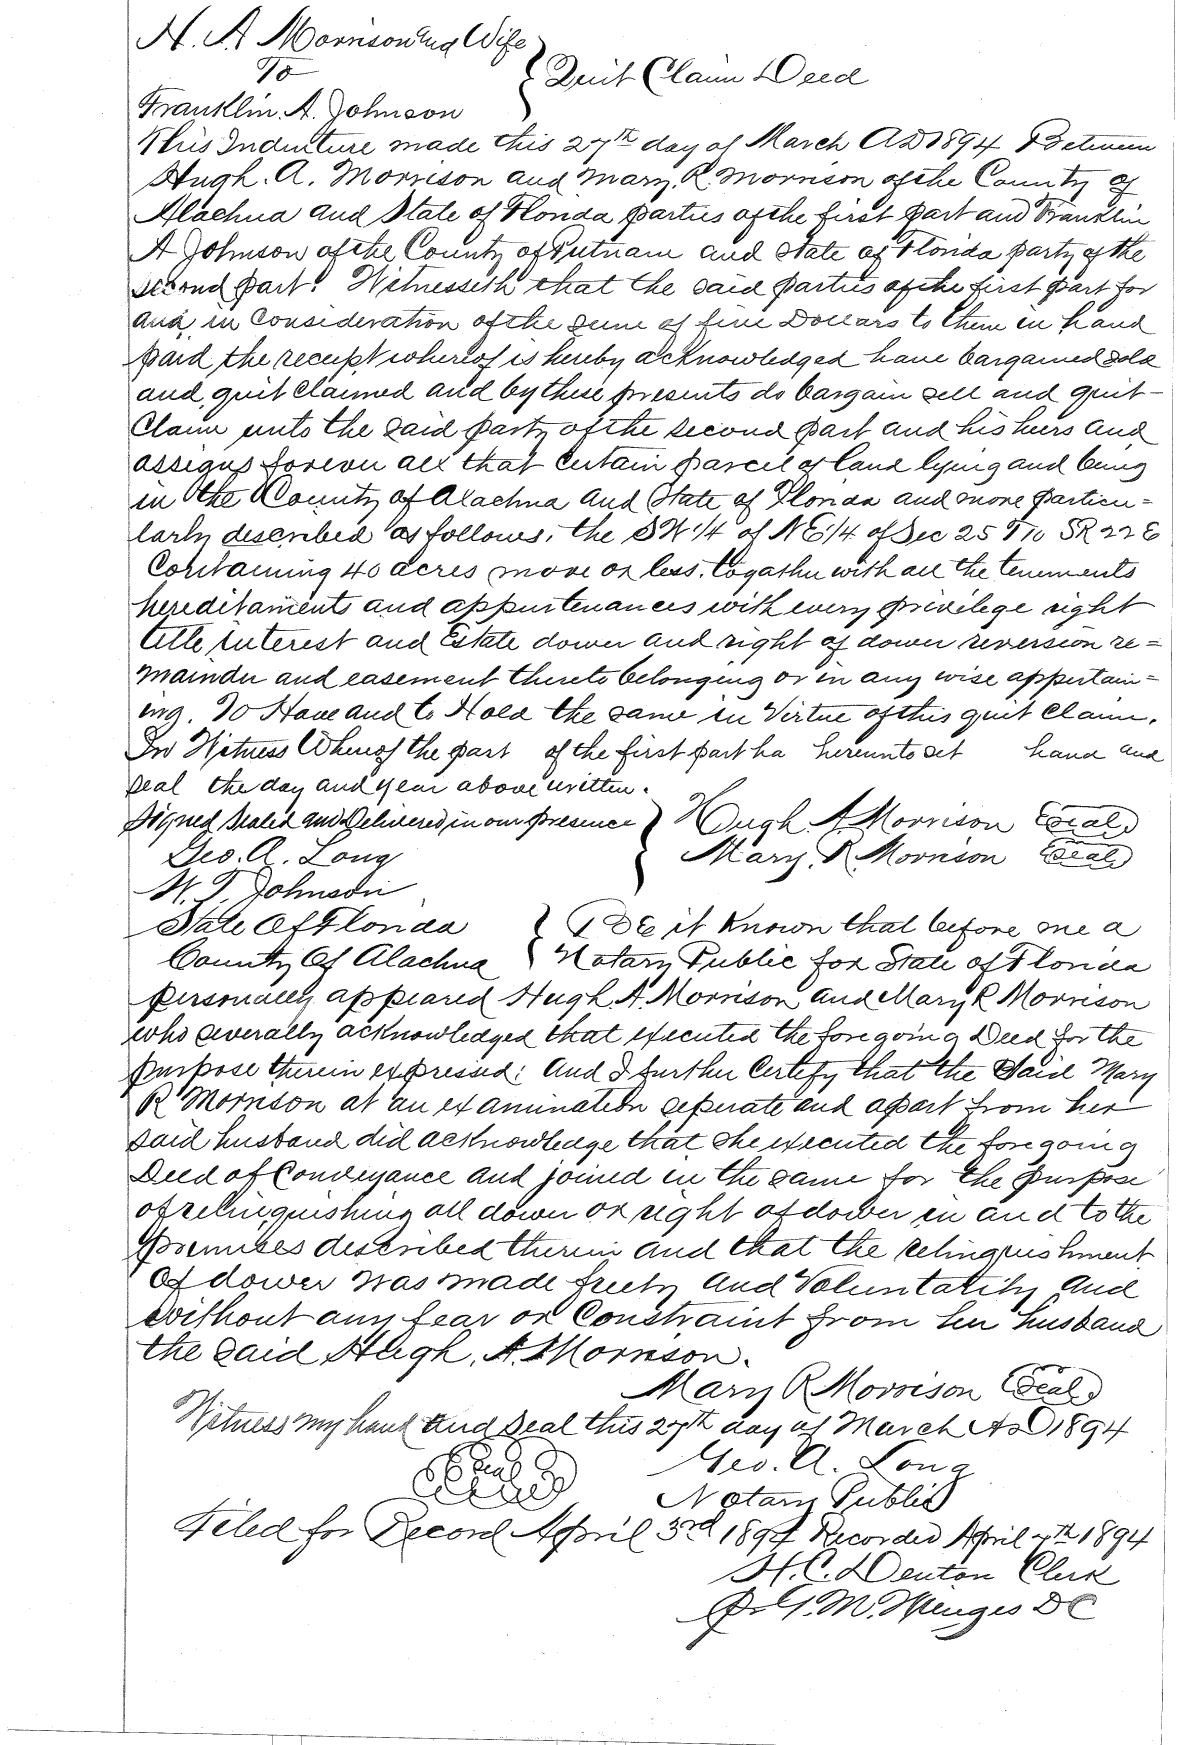 H. A Morrison and Wife
To
Quit Claim Deed
Franklin. A. Johnson
This Indenture made this 27th day of March AD 1894 Between
Hugh. A. Morrison and Mary. R. Morrison of the County of
Alachua and State of Florida parties of the first part and Franklin
A Johnson of the County of Putnam and State of Florida party of the
second part. Witnesseth that the said parties of the first part for
and in Consideration of the sum of five Dollars to them in hand
paid the receipt whereof is hereby acknowledged have bargained sold
and quit Claimed and by these presents do bargain sell and quit-
Claim unto the said party of the second part and his heirs and
assigns forever all that Certain parcel of land lying and being
in the County of Alachua and State of Florida and more particu=
larly described as follows. the SW 1/4 of NE 1/4 of Sec 25 T10 SR 22 E
Containing 40 acres more or less. togather with all the tenements
hereditaments and appurtenances with every privilege right
title interest and Estate dower and right of dower reversion re=
mainder and easement thereto belonging or in any wise appertain=
ing. To Have and to Hold the same in Virtue of this quit Claim.
In Witness Whereof the part of the first part ha hereunto set hand and
seal the day and year above written.
Signed Sealed and Delivered in our presence Hugh. A Morrison (Seal)
Geo. A. Long Mary. R. Morrison (Seal)
W. T. Johnson
State Of Florida BE it Known that before me a
County Of Alachua Notary Public for State of Florida
personally appeared Hugh. A. Morrison and Mary R Morrison
who severally acknowledged that executed the foregoing Deed for the
purpose therein expressed: And I further Certify that the Said Mary
R Morrison at an examination seperate and apart from her
said husband did acknowledge that she executed the foregoing
Deed of Conveyance and joined in the same for the purpose
of relinquishing all dower or right of dower in and to the
premises described therein and that the relinquishment
Of dower was made freely and Voluntarily and
without any fear or Constraint from her husband
the said Hugh. A. Morrison.
Mary R Morrison (Seal)
Witness my hand and Seal this 27th day of March AD 1894
Seal Geo. A. Long
Notary Public
Filed for Record April 3rd 1894 Recorded April 7th 1894
H. C. Denton Clerk
DC